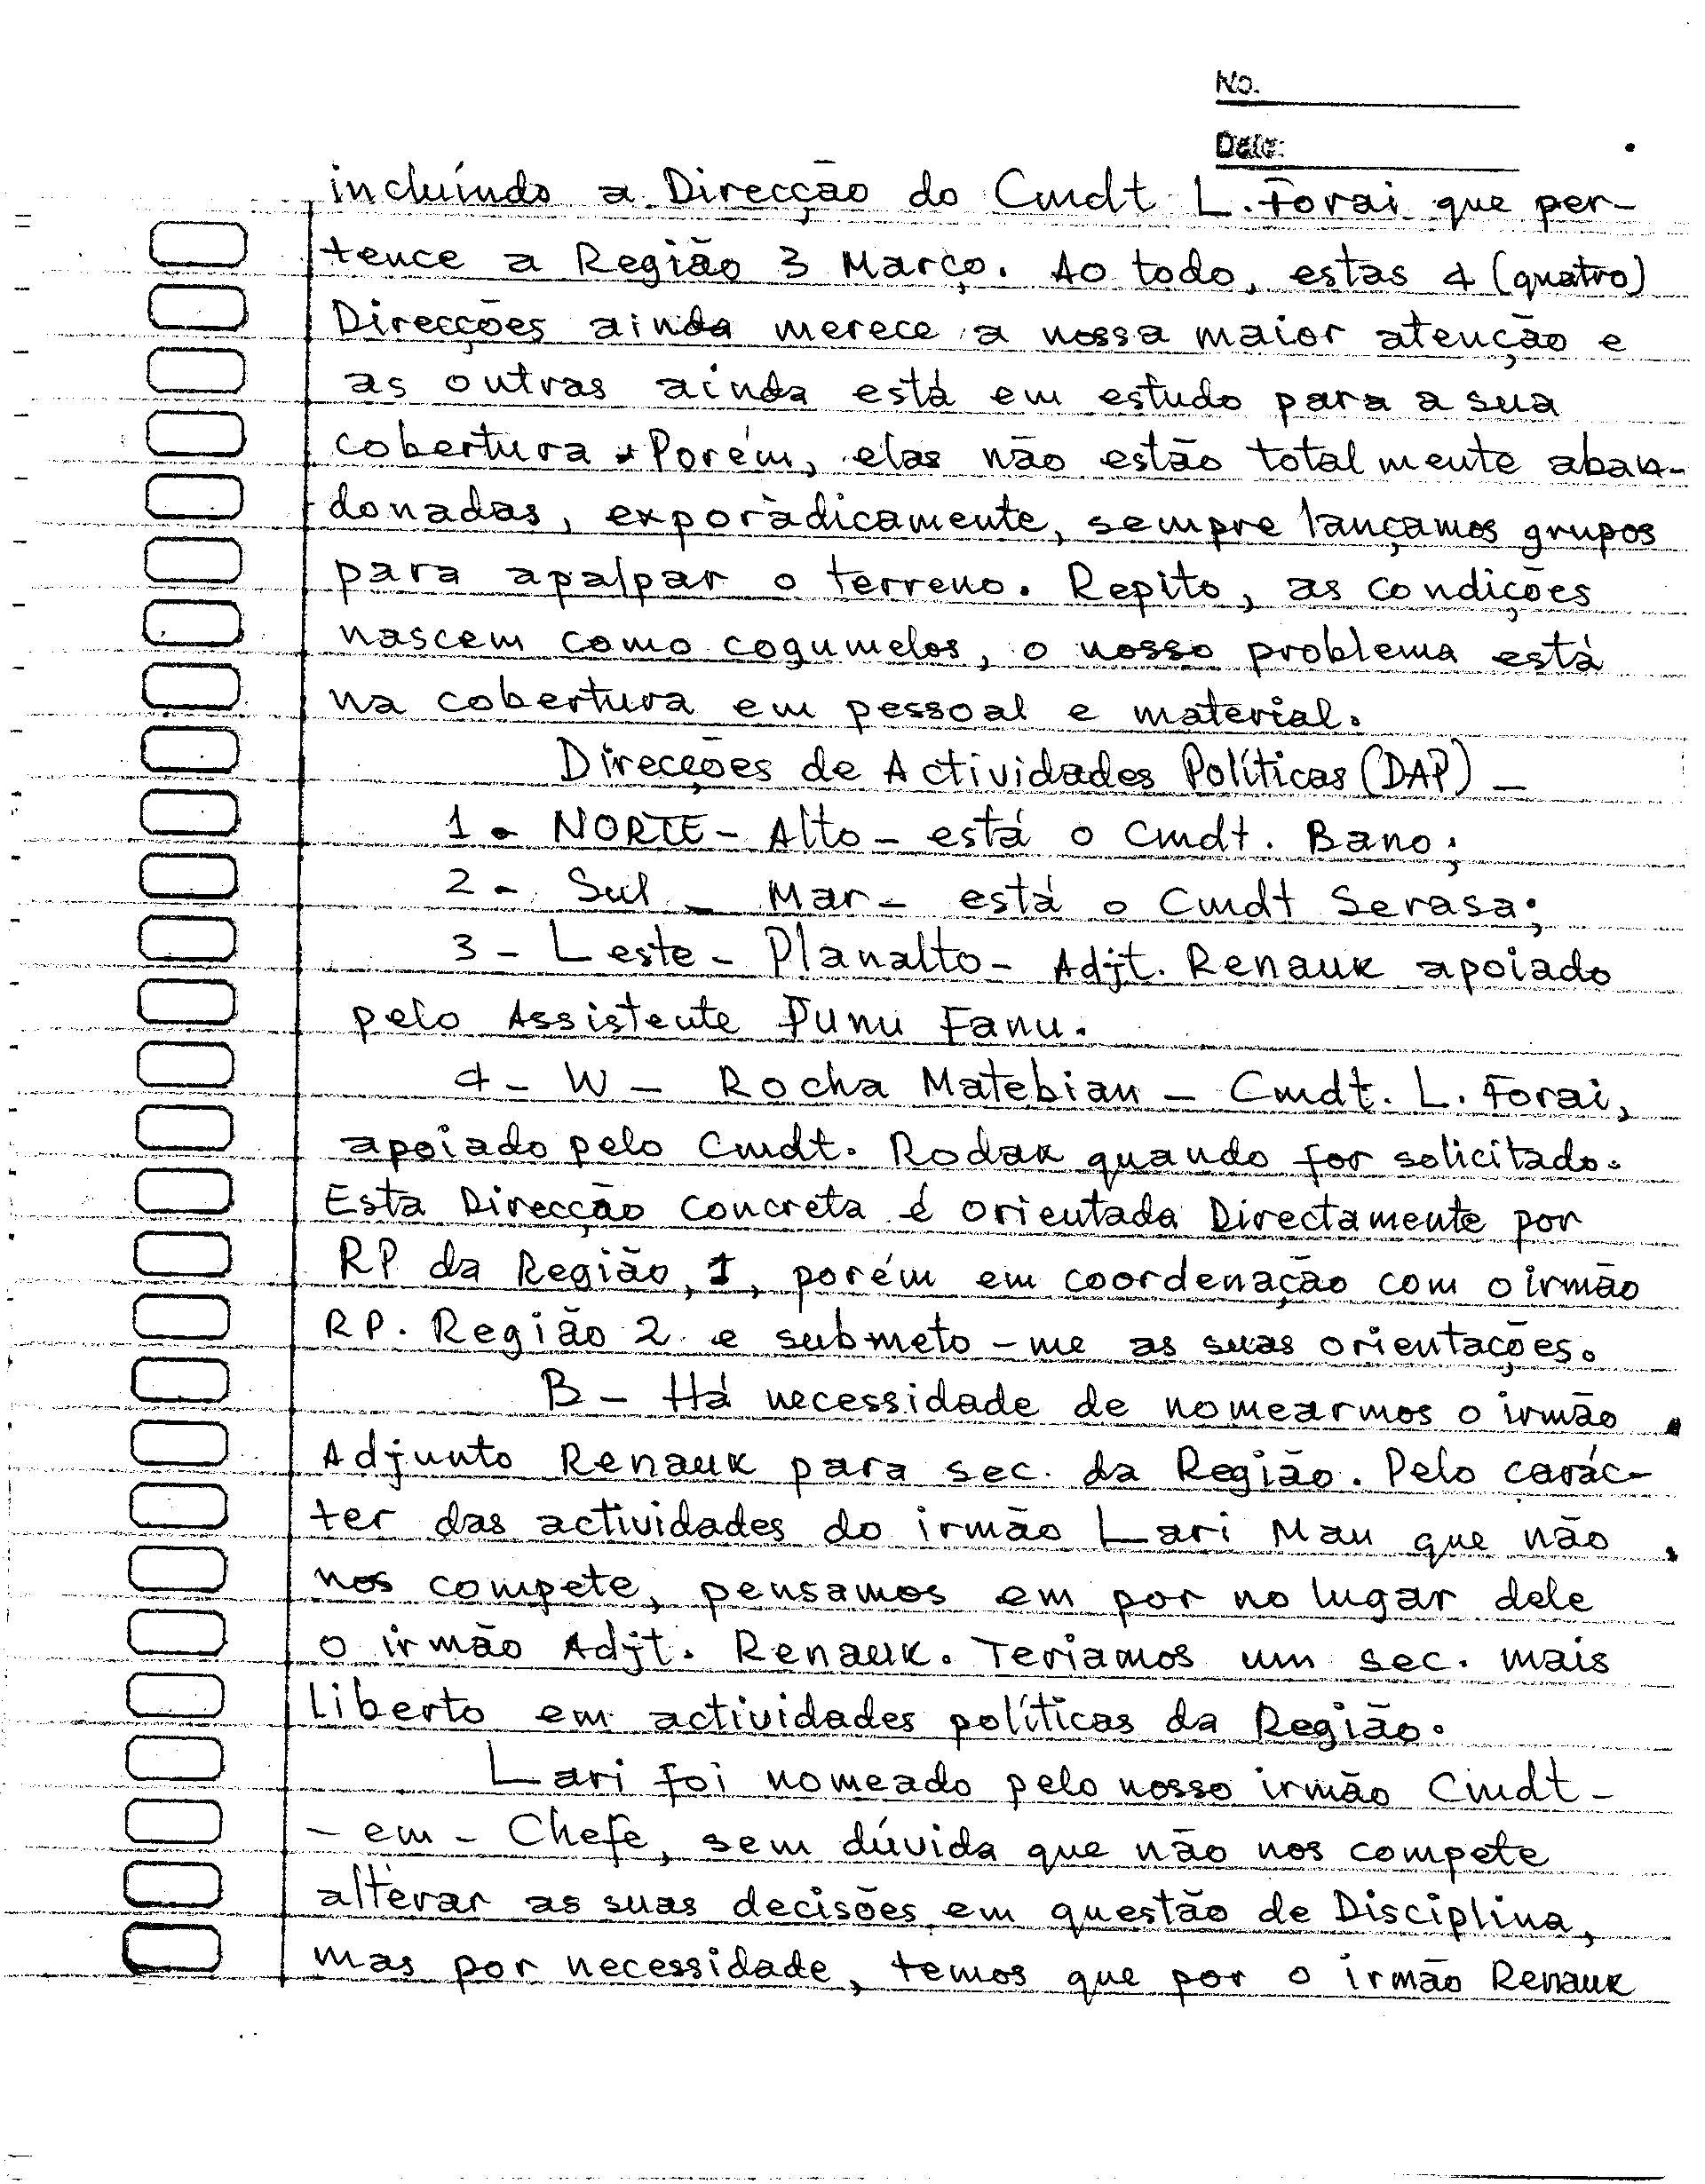 No.
Date:
incluíndo a Direcção do Cmdt L. Forai que per-
tence a Região 3 Março. Ao todo, estas 4 (quatro)
Direcções ainda merece a nossa maior atenção e
as outras ainda está em estudo para a sua
cobertura. Porém, elas não estão totalmente aban-
donadas, exporàdicamente, sempre lançamos grupos
para apalpar o terreno. Repito, as condições
nascem como cogumelos, o nosso problema está
na cobertura em pessoal e material.
Direcções de Actividades Políticas (DAP) -
1 - NORTE - Alto - está o Cmdt. Bano;
2 - Sul - Mar - está o Cmdt Serasa;
3 - Leste - Planalto - Adjt. Renauk apoiado
pelo Assistente Funu Fanu.
4 - W - Rocha Matebian - Cmdt. L. Forai,
apoiado pelo Cmdt. Rodak quando for solicitado.
Esta Direcção concreta é orientada Directamente por
RP da Região, 1, porém em coordenação com o irmão
RP. Região 2 e submeto-me as suas orientações.
B - Há necessidade de nomearmos o irmão
Adjunto Renauk para sec. da Região. Pelo carác-
ter das actividades do irmão Lari Mau que não
nos compete, pensamos em por no lugar dele
o irmão Adjt. Renauk. Teriamos um sec. mais
liberto em actividades políticas da Região.
Lari foi nomeado pelo nosso irmão Cmdt-
-em-Chefe, sem dúvida que não nos compete
alterar as suas decisões em questão de Disciplina,
mas por necessidade, temos que por o irmão Renauk